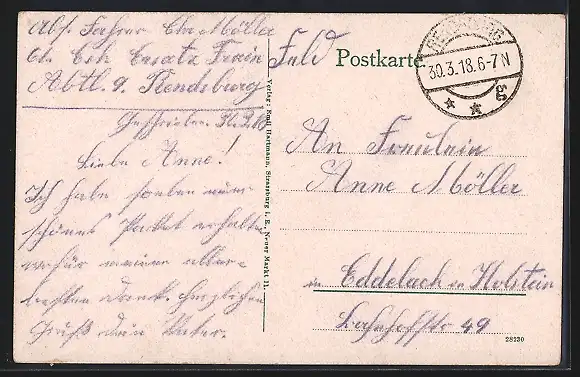 Abs. Fahrer Chr. Möller
Ersatz Train
Abtl. 9. Rendsburg
Geschrieben. 30.3.18
Liebe Anne!
Ich habe soeben euer
schönes Packet erhalten
wofür meinen aller-
besten Dank. herzlichen
Gruß dein Vater.
Verlag: Emil Hartmann, Strassburg i. E., Neuer Markt 11.
Feld Postkarte
RENDSBURG
30.3.18.6-7N
An Fräulein
Anne Möller
in Eddelack in Holstein
Bahnhofstr 49
28230